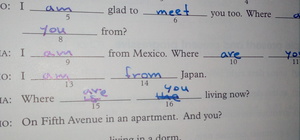 O: I am glad to meet you too. Where a
5 6
you from?
8
A: I am from Mexico. Where are yo
9 10 11
O: I am from Japan.
13 14
IA: Where are you living now?
15 16
IO: On Fifth Avenue in an apartment. And you?
living in a dorm.